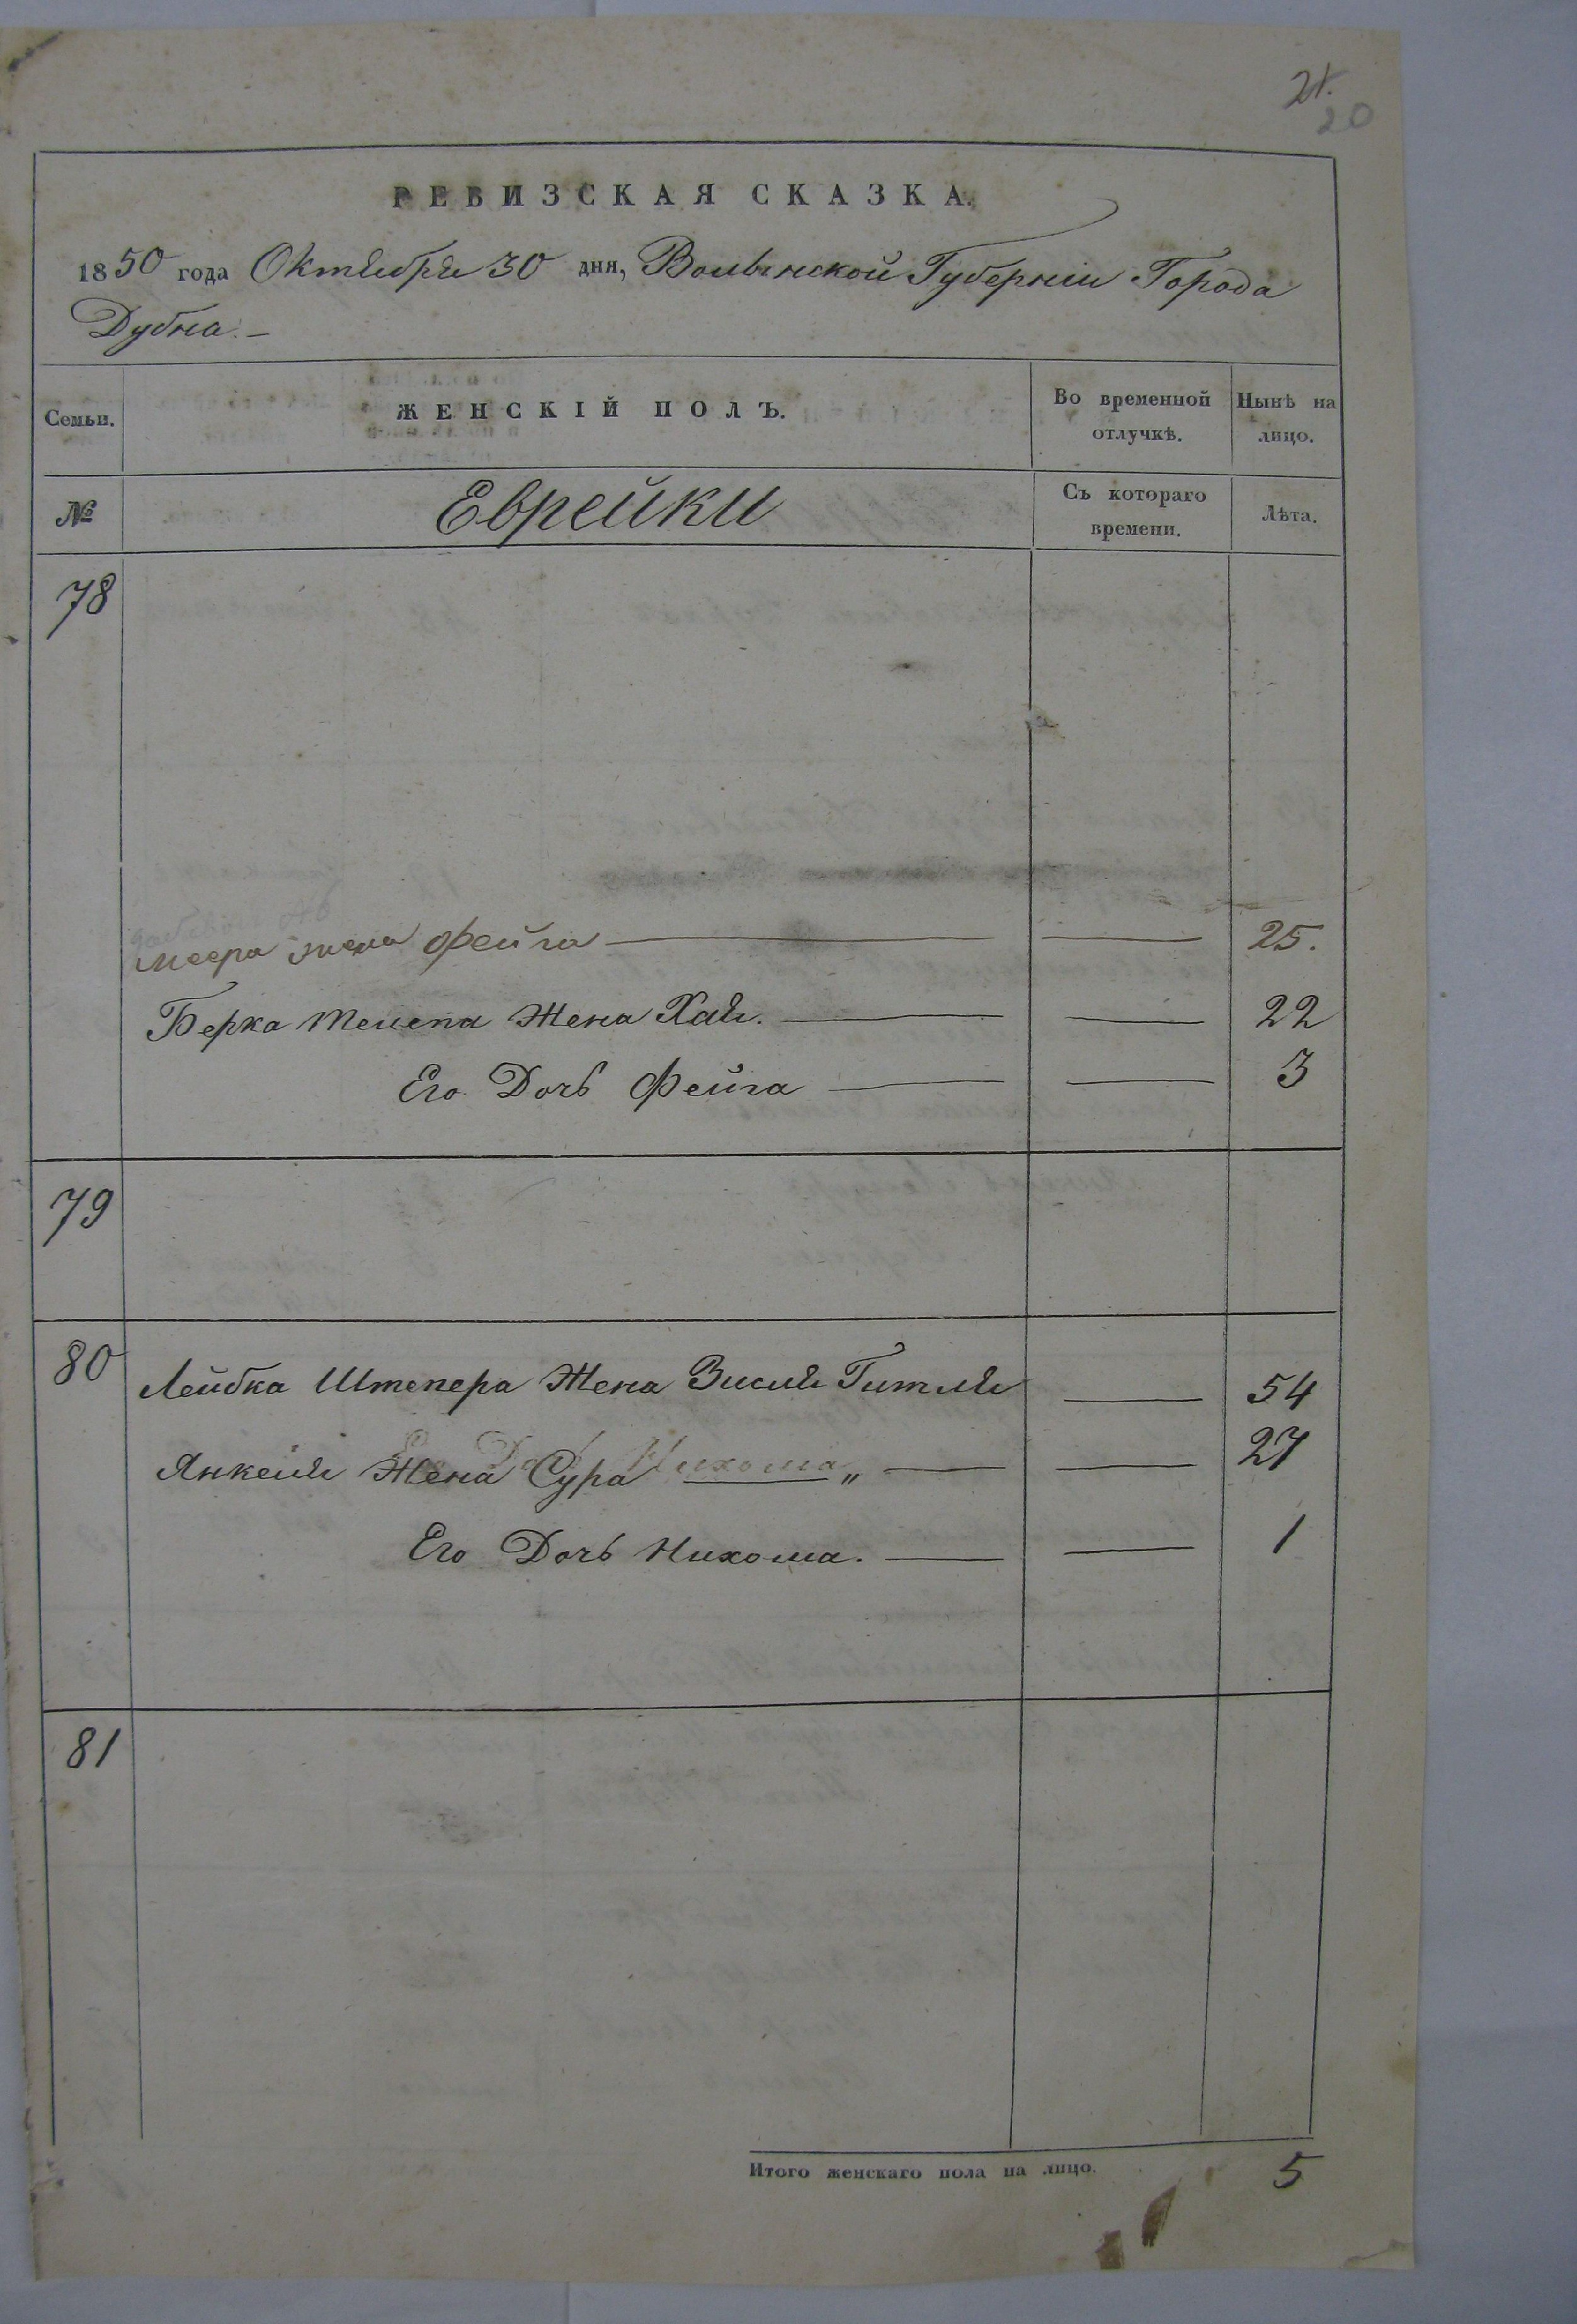 21.
20
РЕВИЗСКАЯ СКАЗКА.
1850 года Октября 30 дня, Волынской Губерніи Города
Дубна.–
Семьи. ЖЕНСКІЙ ПОЛЪ. Во временной отлучкѣ. Нынѣ на лицо.
№ Еврейки Съ котораго времени. Лѣта.
78
Меера жена Фейга — — 25.
Берка Жена Хая. — — 22
Его Дочь Фейга — — 3
79
80 Лейбка Штепера Жена Зисля Гитля — 54
Янкеля Жена Сура „ — — 27
Его Дочь Нихома. — — 1
81
Итого женскаго пола на лицо. 5